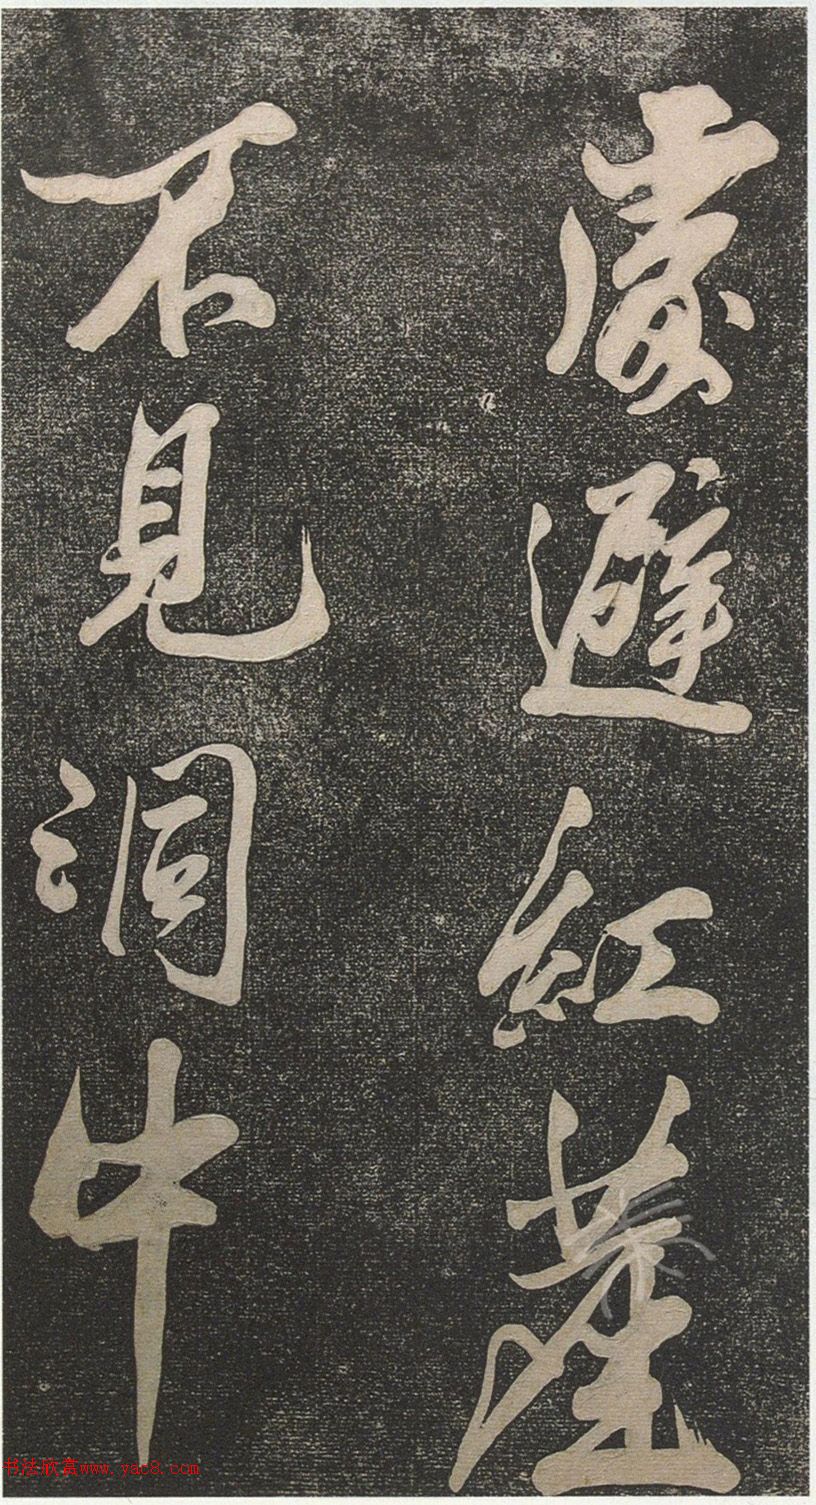 處避紅塵
不見洞中
书法欣赏www.yac8.com